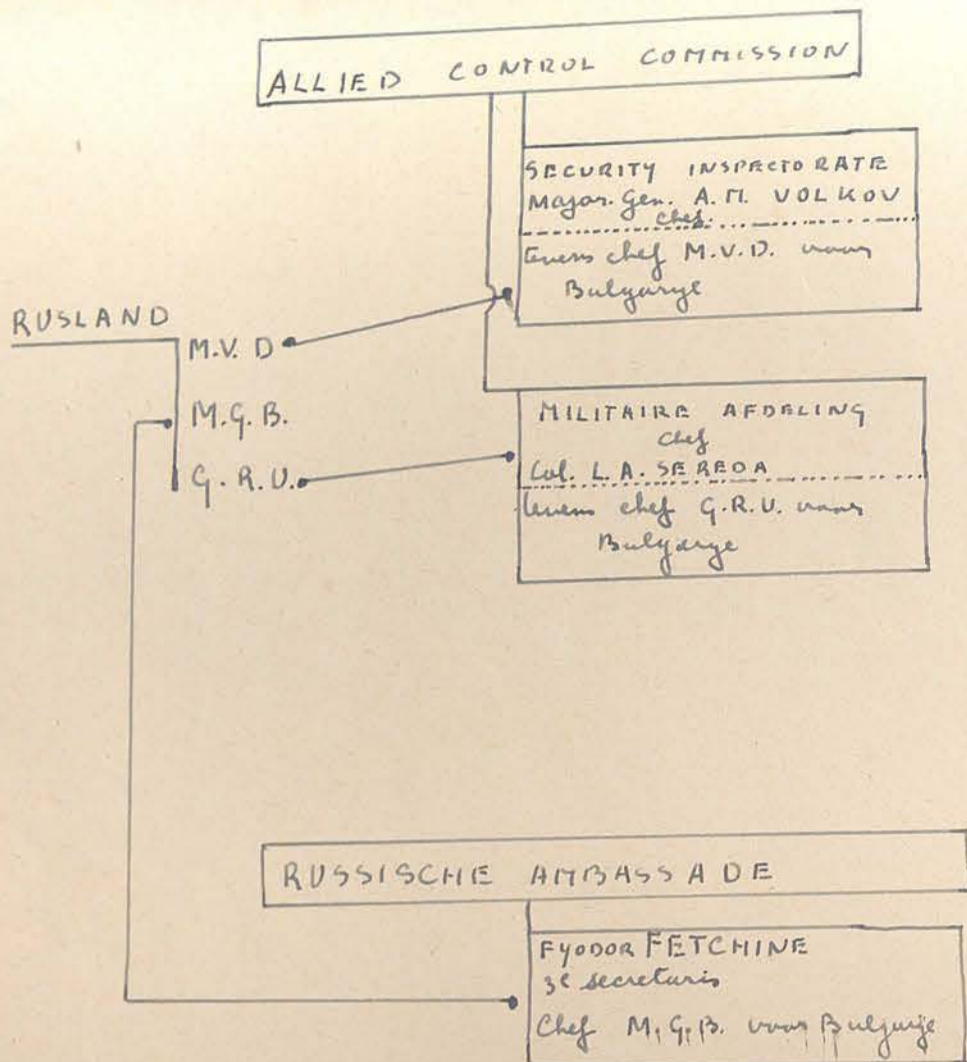 ALLIED CONTROL COMMISSION
SECURITY INSPECTORATE
Major. Gen. A.M. VOLKOV
chef.
tevens chef M.V.D. voor
Bulgarye
RUSLAND
M.V.D
M.G.B.
G.R.U.
MILITAIRE AFDELING
chef
Col. L.A. SEREDA
tevens chef G.R.U. voor
Bulgarye
RUSSISCHE AMBASSADE
FYODOR FETCHINE
3e secretaris
Chef M.G.B. voor Bulgarye